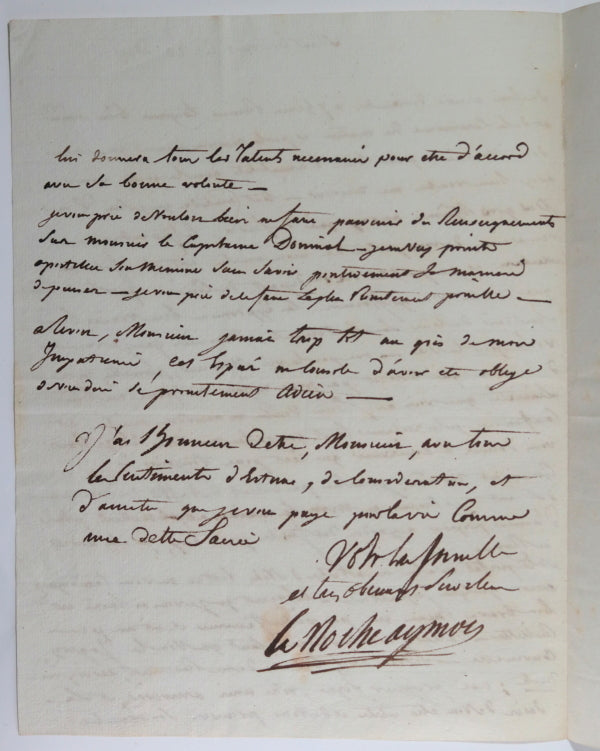 lui donnera tous les Talents necessaires pour etre d'accord
avec sa bonne volonté —
je vous prie de vouloir bien me faire parvenir des Renseignements
sur monsieur le Capitaine je ne veus point
apostiller son memoire sans savoir positivement
de penser — je vous prie de le faire le plus Promtement possible —
a Revoir, Monsieur jamais trop tôt au grés de mon
Impatience, cet Espoir me Console d'avoir été obligé
de vous dire si promtement adieu —
J'ai l'honneur d'etre, Monsieur, avec tous
les Sentiments d'Estime, de Consideration, et
d'amitié que je vous paye pour la vie Comme
une dette Sacrée
Votre tres humble
et tres obeissant Serviteur
la Roche aymon